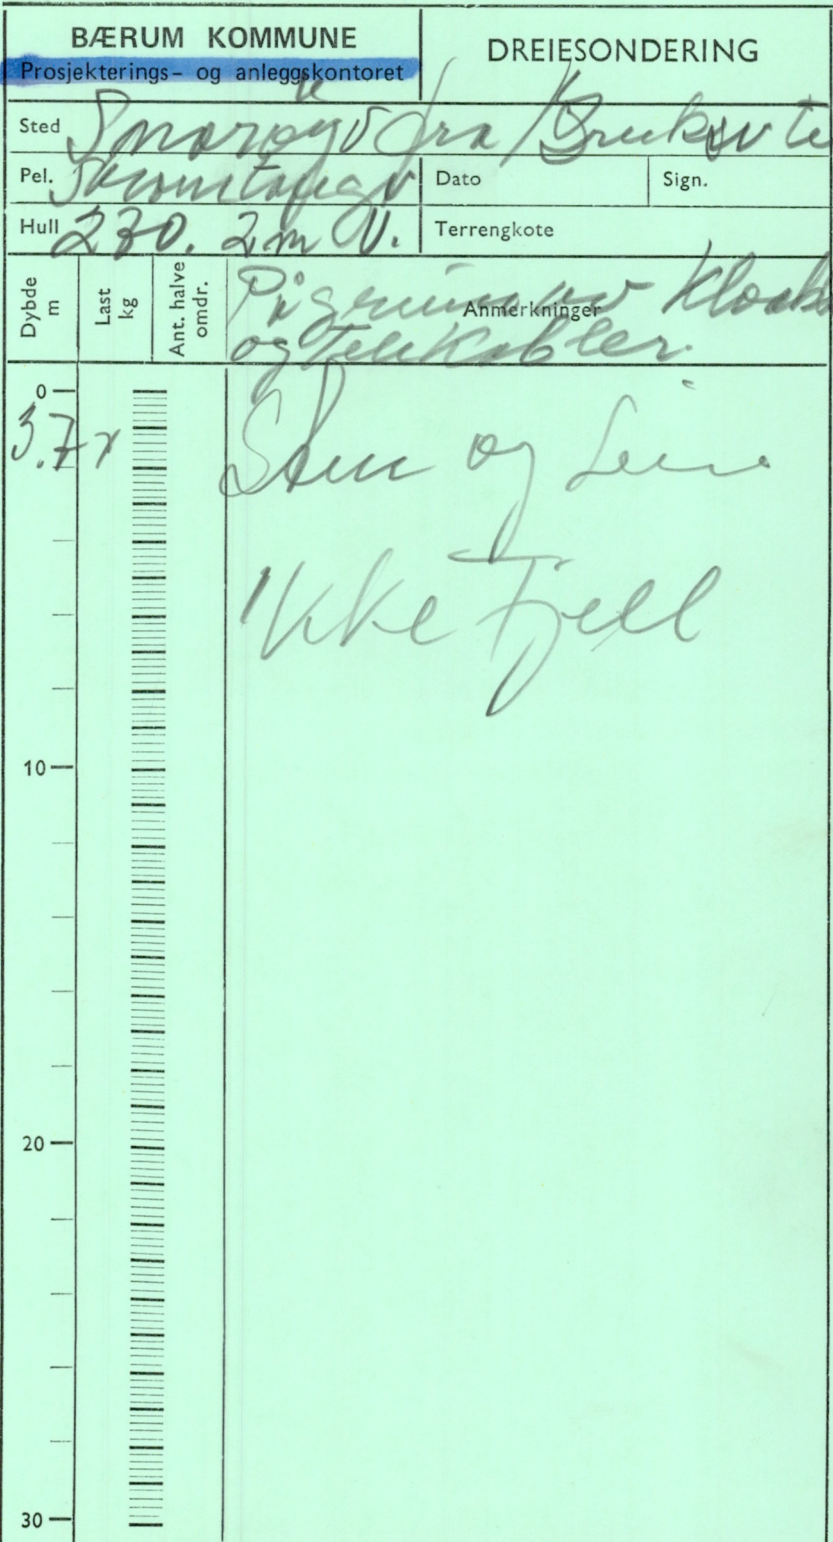 BÆRUM KOMMUNE
Prosjekterings- og anleggskontoret
DREIESONDERING
Sted Snarøyv fra Bruksv te
Pel.
Dato
Sign.
Hull 270. 2m V.
Terrengkote
Dybde m
Last kg
Ant. halve omdr.
Anmerkninger
På grunn av Kloakk
og Telekabler.
0
3.7 x
Sten og Leire
Ikke Fjell
10
20
30